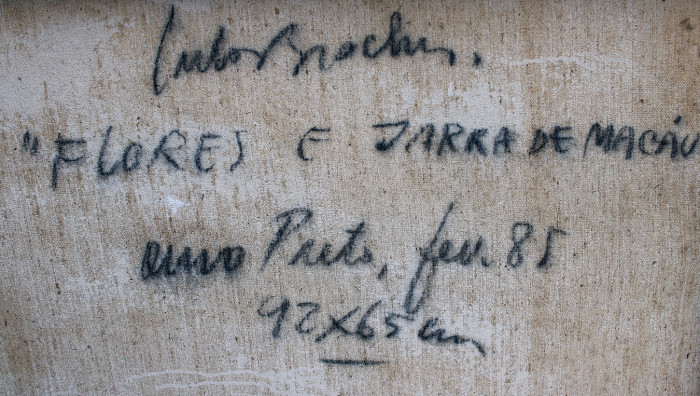 Carlos Bracher.
"FLORES E JARRA DE MACAU
ouro Preto, fev. 85
92x65 cm